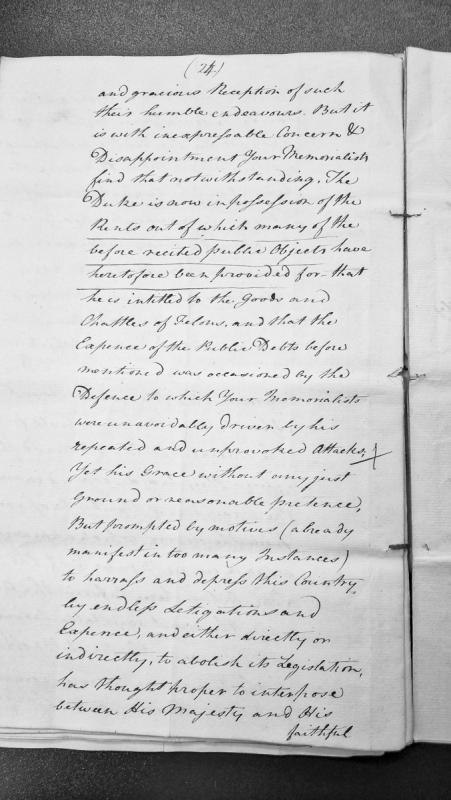 (24.)
and gracious Reception of such
their humble endeavours. But it
is with inexpressable Concern &
Disappointment Your Memorialists
find that notwithstanding, The
Duke is now in possession of the
Rents out of which many of the
before recited public Objects have
heretofore been provided for - that
he is intitled to the Goods and
Chattles of Felons, and that the
Expence of the Public Debts before
mentioned was occasioned by the
Defence to which Your Memorialists
were unavoidably driven by his
repeated and unprovoked Attacks,
Yet his Grace without any just
Ground or reasonable pretence,
But prompted by motives (already
manifest in too many Instances)
to harrass and depress this Country,
by endless Letigations and
Expence, and either directly or
indirectly, to abolish its Legislation,
has thought proper to interpose
between His Majesty and His
faithful